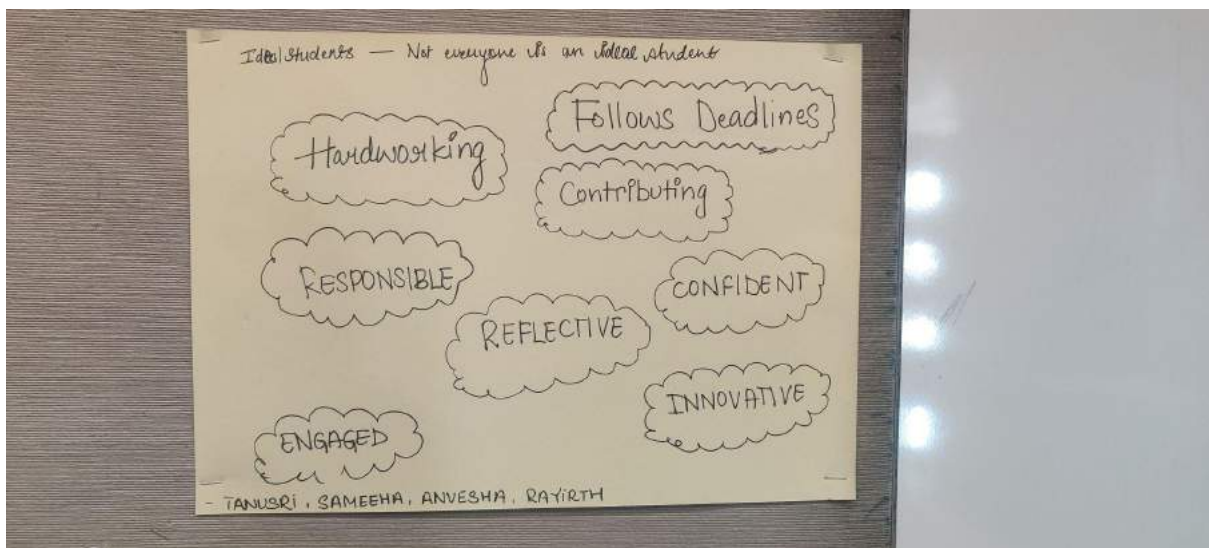 Ideal students — Not everyone is an ideal student
Follows Deadlines
Hardworking
Contributing
RESPONSIBLE
CONFIDENT
REFLECTIVE
INNOVATIVE
ENGAGED
- TANUSRI, SAMEEHA, ANVESHA, RAYIRTH